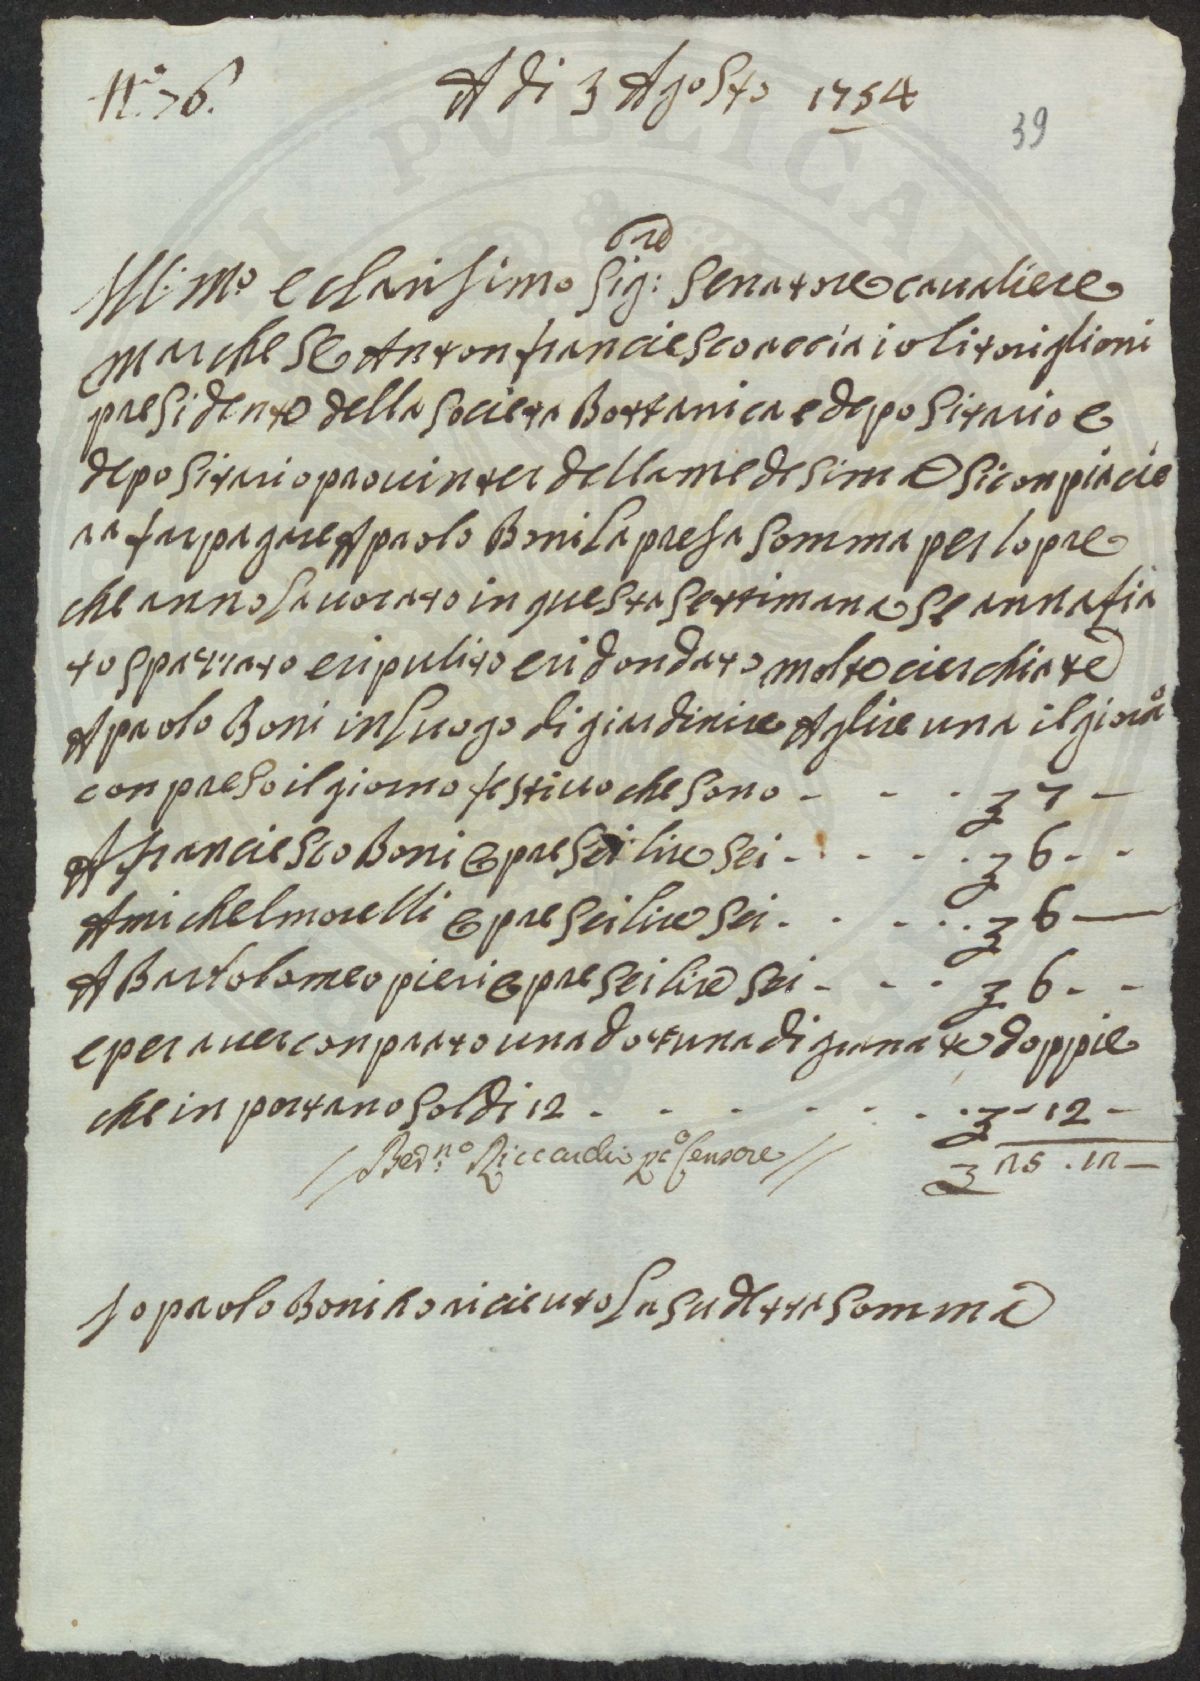 N.° 76.
A di 3 Agosto 1754
39
Ill: Mo e clarisimo Sig:re Senatore caualiere
marchese Antonfranciesco acciaioli toriglioni
presidente della Societa Bottanica e depositario e
depositario prouinter della medesima Si conpiacie
ra far pagare A paolo Boni La presa Somma per lopre
che anno Lauorato in questa Settimana Se annafia
to spazzato e ripulito e ridondato molte cierchiate
A paolo Boni in Luogo di giardinire A glire una il giorno
conpreso il giorno festiuo che Sono - - - 7 -
A franciesco Boni e pre Sei lire Sei - - - - 6 - -
A michel morelli e pre Sei lire Sei - - - - 6 -
A Bartolomeo pieri e pre Sei lire Sei - - - 6 - -
e per auer conprato una dottuna di granate doppie
che inportano Soldi 12 - - - - - - - 12 -
// Berno: Riccardi pco Censore //
25 . 12 -
Io paolo Boni o riceuto La Sudetta Somma
I PVBLICAE